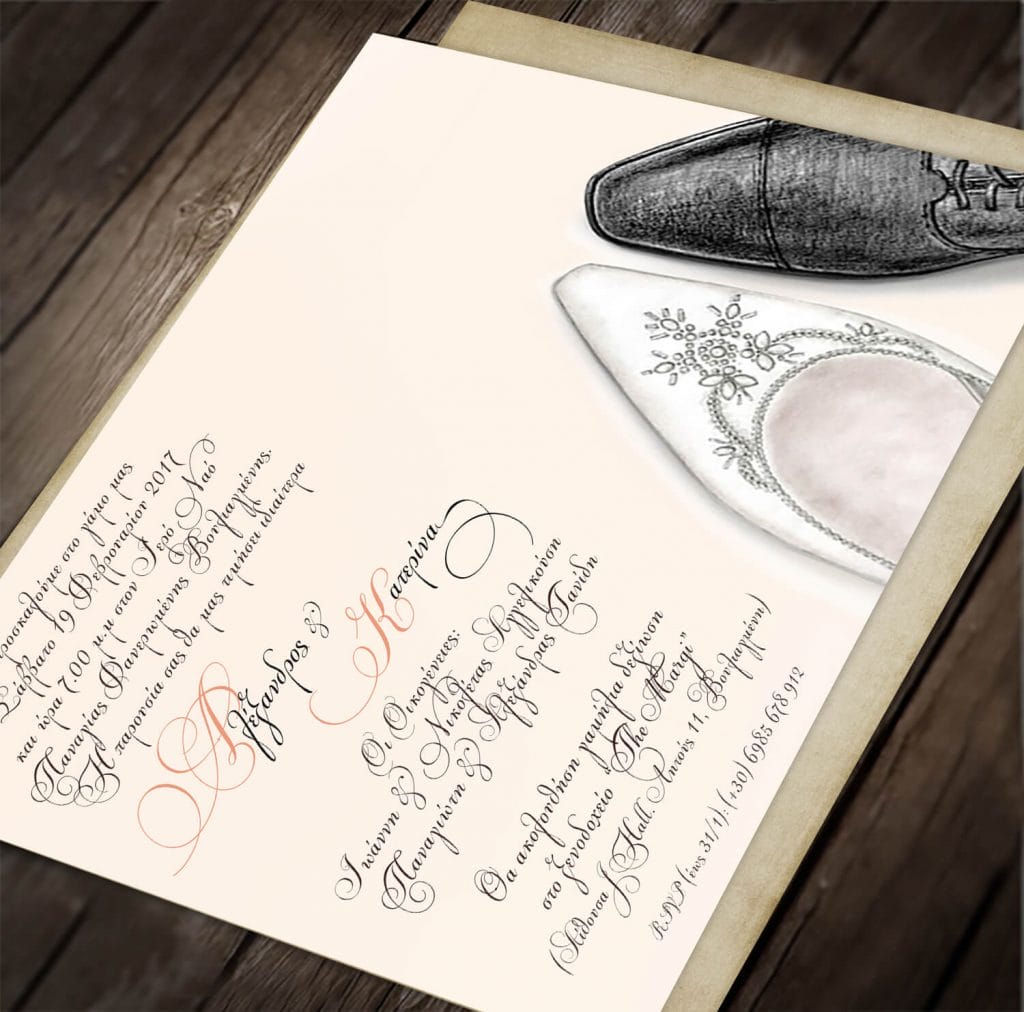 ροσκαλούμε στο γάμο μας
Σάββατο 19 Φεβρουαρίου 2017
και ώρα 7.00 μ.μ στον Ιερό Ναό
Παναγίας Φανερωμένης Βουλιαγμένης.
Η παρουσία σας θα μας τιμήσει ιδιαίτερα
Αλέξανδρος &
Κατερίνα
Οι Οικογένειες:
Ιωάννη & Νικολέτας Αγγελικούση
Παναγιώτη & Αλεξάνδρας
Θα ακολουθήσει γαμήλια δεξίωση
στο ξενοδοχείο “The Margi”
(Αίθουσα J Hall, Λητούς 11, Βουλιαγμένη)
RSVP (έως 31/1): (+30) 6985 678 912